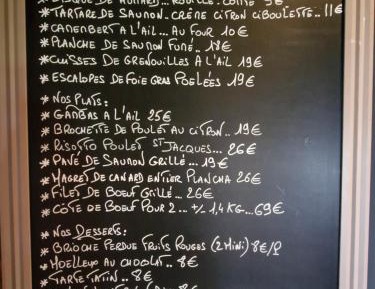 * BISQUE DE HOMARD... ROUILLE. COMTÉ 9€
* TARTARE DE SAUMON. CRÈME CITRON CIBOULETTE.. 11€
* CAMEMBERT A L'AIL... AU FOUR 10€
* PLANCHE DE SAUMON FUMÉ.. 18€
* CUISSES DE GRENOUILLES À L'AIL 19€
* ESCALOPES DE FOIE GRAS POELÉES 19€
* NOS PLATS:
* GAMBAS A L'AIL 25€
* BROCHETTE DE POULET AU CITRON.. 19€
* RISOTTO POULET ST JACQUES... 26€
* PAVÉ DE SAUMON GRILLÉ... 19€
* MAGRET DE CANARD ENTIER PLANCHA 26€
* FILET DE BOEUF GRILLÉ... 26€
* CÔTE DE BOEUF POUR 2... +/- 1,4 KG... 69€
* NOS DESSERTS:
* BRIOCHE PERDUE FRUITS ROUGES (2 MINI) 8€/P
* MOELLEUX AU CHOCOLAT.. 8€
* TARTE TATIN.. 8€